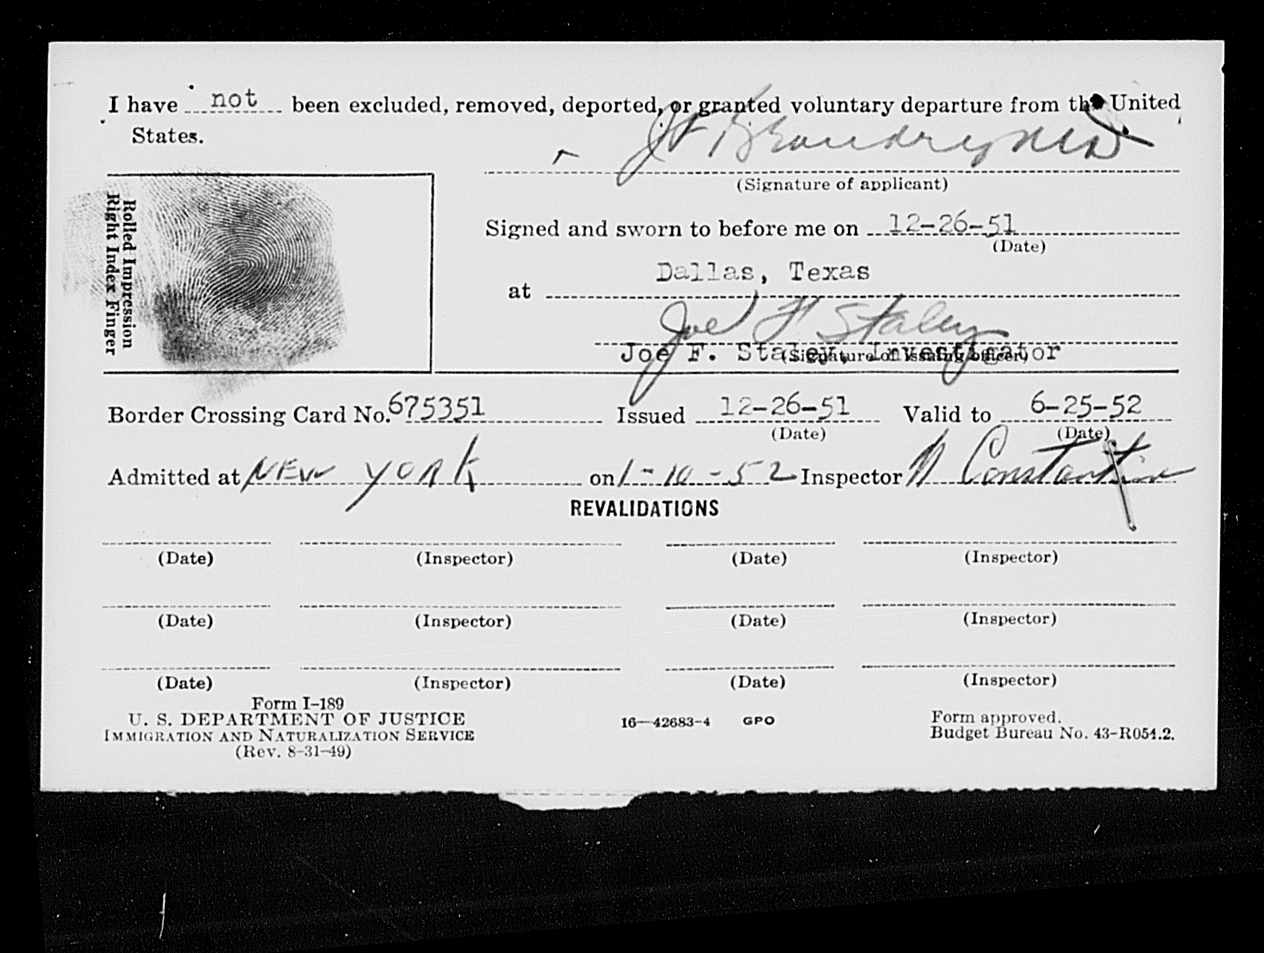 I have not been excluded, removed, deported, or granted voluntary departure from the United
States.
(Signature of applicant)
Rolled Impression
Right Index Finger
Signed and sworn to before me on 12-26-51
(Date)
at Dallas, Texas
Joe F Staley
Joe F. Staley, Investigator
(Signature of issuing officer)
Border Crossing Card No. 675351 Issued 12-26-51 Valid to 6-25-52
(Date) (Date)
Admitted at NEW YORK on 1-10-52 Inspector N Constantine
REVALIDATIONS
(Date) (Inspector) (Date) (Inspector)
(Date) (Inspector) (Date) (Inspector)
(Date) (Inspector) (Date) (Inspector)
Form I-189
U. S. DEPARTMENT OF JUSTICE
IMMIGRATION AND NATURALIZATION SERVICE
(Rev. 8-31-49)
16—42683-4 GPO
Form approved.
Budget Bureau No. 43-R054.2.